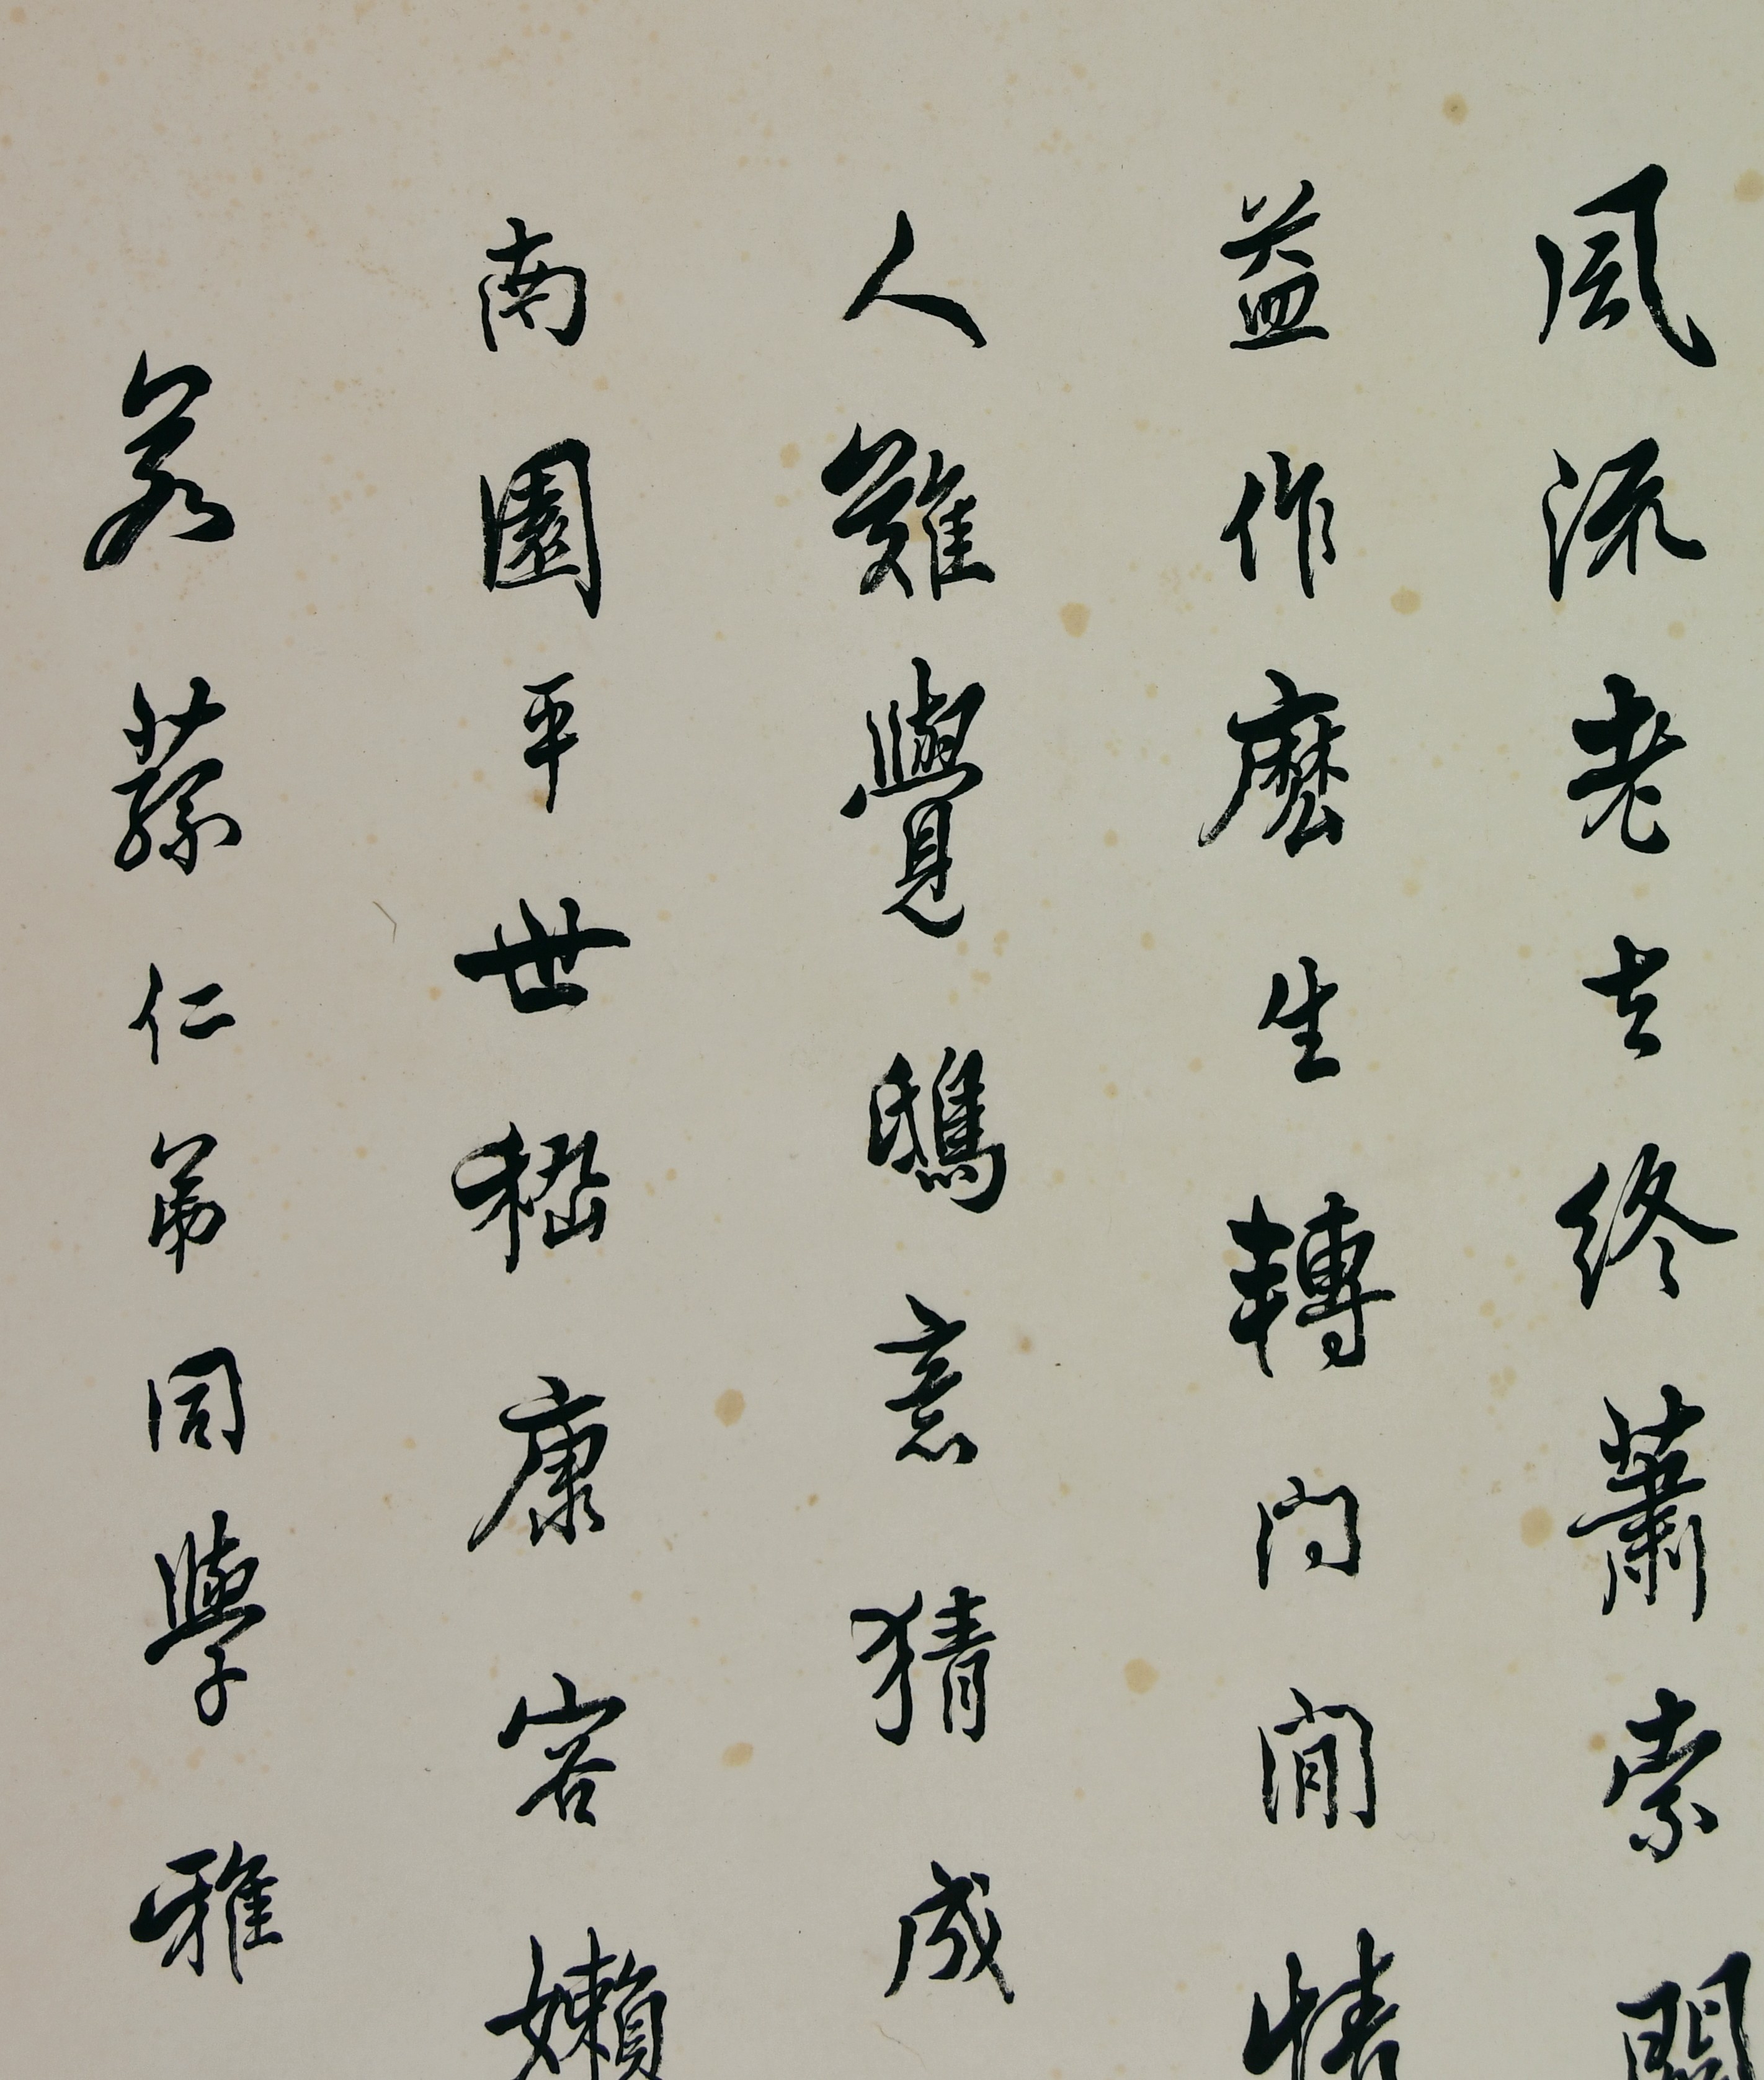 風流老去終蕭索關
益作麼生轉門閒情
人難覺鴟意猜成
南園平世嵇康容嬾
若蓀仁弟同學雅